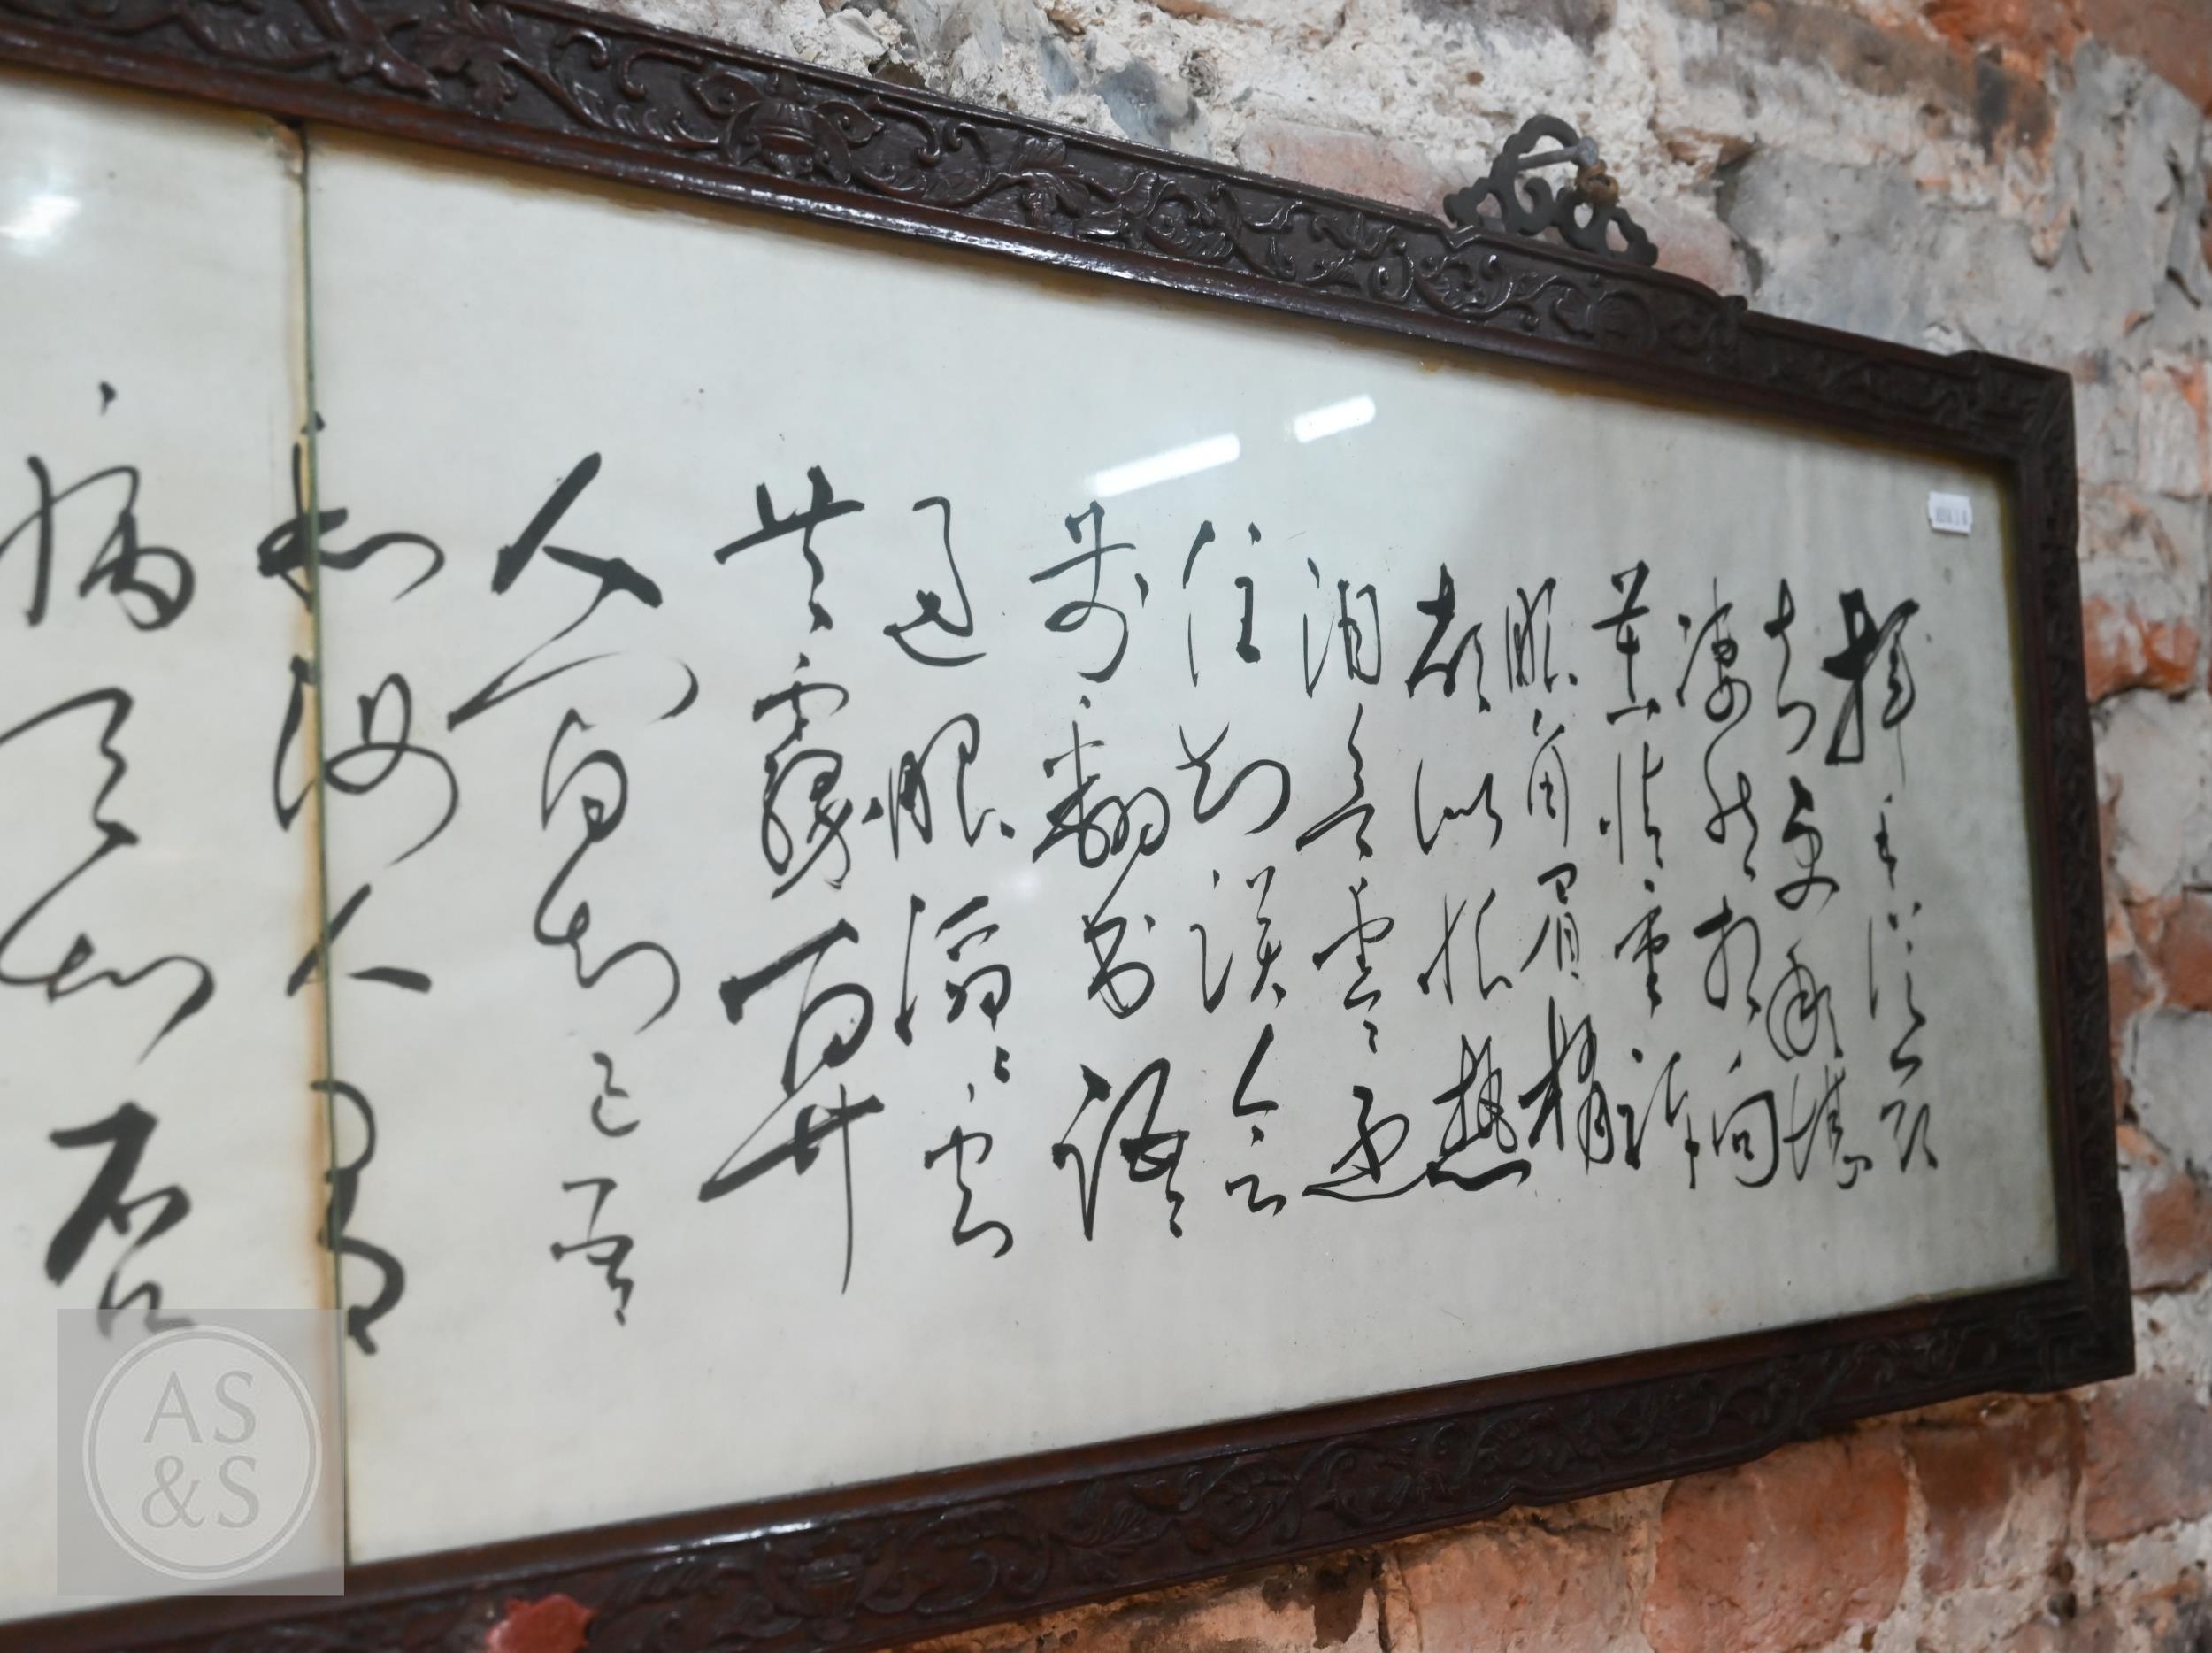 揮手從茲
去更那堪
凄然相向
苦情重訴
眼角眉梢
都似恨熱
泪欲零還
住知誤會
前番書語
過眼滔滔雲
共霧算
人間知己吾
和汝人有
病天知否
AS
&S